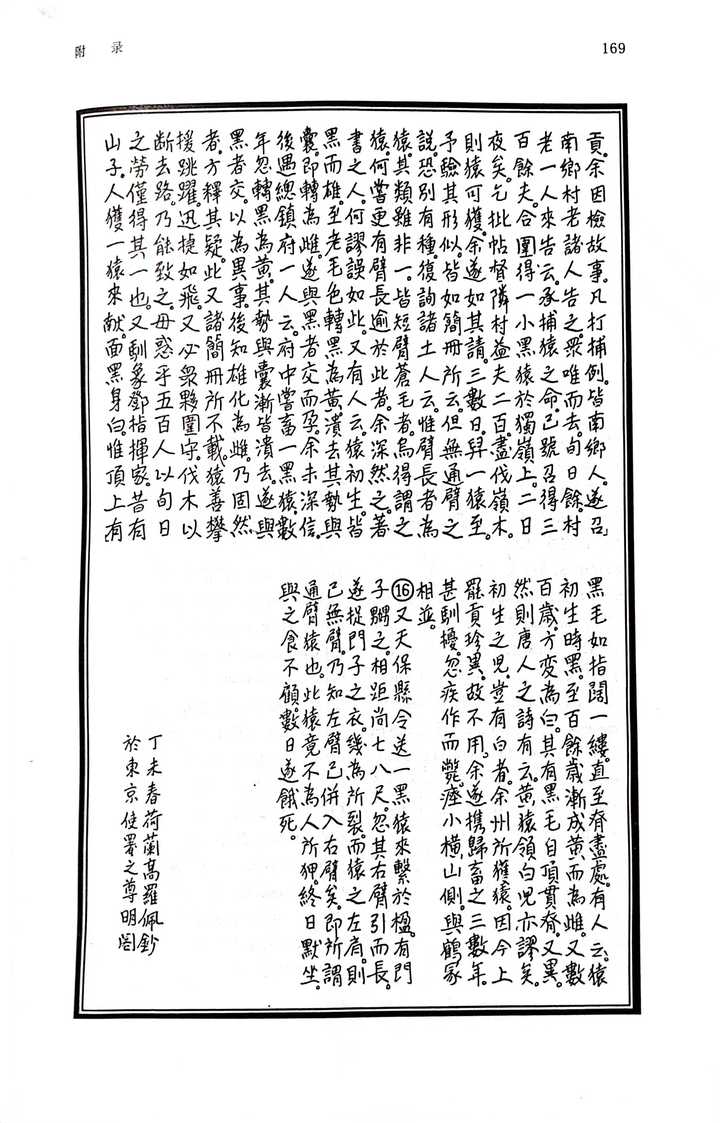 附录
169
貢。余因檢故事。凡打捕例。皆南鄉人。遂召
南鄉村老諸人告之。衆唯而去。旬日餘。村
老一人來告云。承捕猿之命。已號召得三
百餘夫。合圍得一小黑猿於獨嶺上。二日
夜矣。乞批帖督隣村益夫二百。盡伐嶺木。
則猿可獲。余遂如其請。三數日。舁一猿至。
予驗其形似。皆如簡冊所云。但無通臂之
説。恐別有種。復詢諸土人云。惟臂長者為
猿。其類雖非一。皆短臂蒼毛者。烏得謂之
猿。何嘗更有臂長逾於此者。余深然之。著
書之人。何謬誤如此。又有人云。猿初生。皆
黑而雄。至老毛色轉黑為黃。潰去其勢與
囊。即轉為雌。遂與黑者交而孕。余未深信。
後遇總鎮府一人云。府中嘗畜一黑猿。數
年忽轉黑為黃。其勢與囊漸皆潰去。遂與
黑者交。以為異事。後知雄化為雌。乃固然
者。方釋其疑。此又諸簡冊所不載。猿善攀
援跳躍。迅捷如飛。又必衆夥圍守。伐木以
断去路。乃能致之。毋惑乎五百人以旬日
之勞。僅得其一也。又馴象鄧指揮家。昔有
山子。人獲一猿來献。面黑身白。惟頂上有
黑毛如指闊一縷。直至脊盡處。有人云。猿
初生時黑。至百餘歲漸成黃而為雌。又數
百歲。方變為白。其有黑毛自頂貫脊。又異。
然則唐人之詩有云。黃猿領白兒亦謬矣。
初生之兒。豈有白者。余州所獲猿。因今上
罷貢珍異。故不用。余遂携歸畜之三數年。
甚馴擾。忽疾作而斃。瘞小橫山側。與鶴冢
相並。
⑯又天保縣令送一黑猿來繫於楹。有門
子嬲之。相距尚七八尺。忽其右臂引而長。
遂捉門子之衣。幾為所裂。而猿之左肩。則
已無臂。乃知左臂已併入右臂矣。即所謂
通臂猿也。此猿竟不為人所狎。終日默坐。
與之食不顧。數日遂餓死。
丁未春荷蘭高羅佩鈔
於東京使署之尊明閣